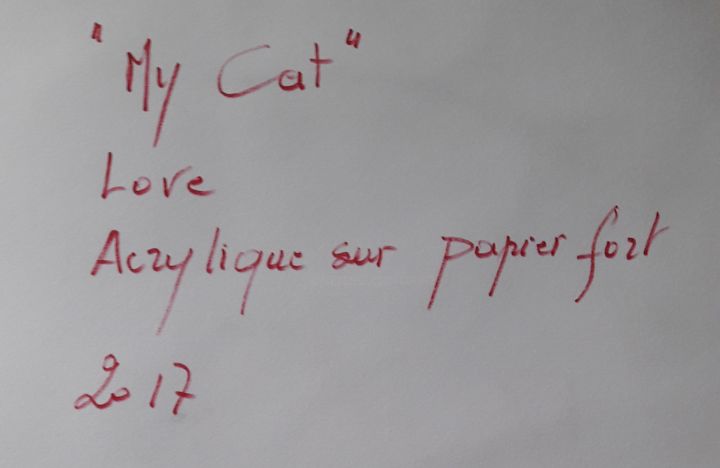 "My Cat"
Love
Acrylique sur papier fort
2017